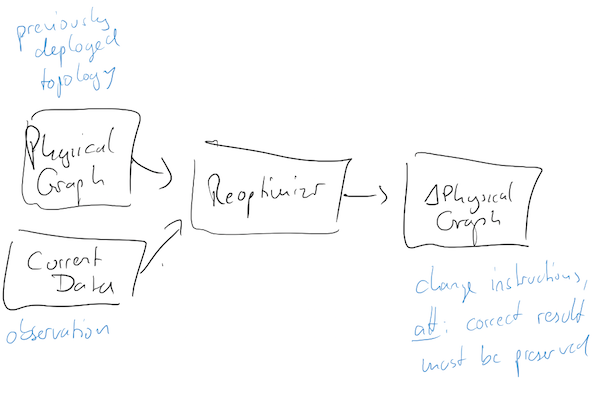 previously
deployed
topology
Physical
Graph
Current
Data
observation
Reoptimizr
ΔPhysical
Graph
change instructions,
att: correct result
must be preserved